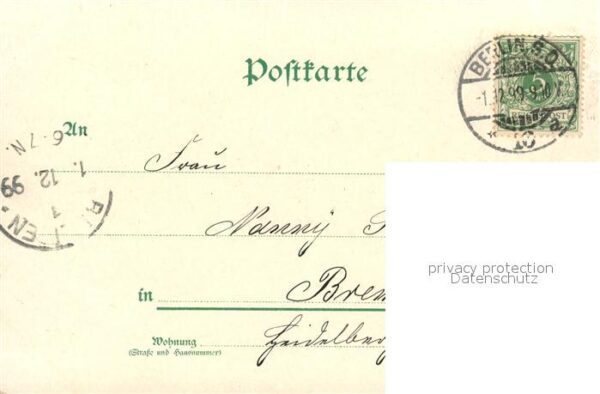 Postkarte
BERLIN S.O.
-1.12.99.9-10V.
5
POST
* 16
An
6-7N.
1. 12. 99
EN*
Frau
Nanny
privacy protection
Datenschutz
in
Brem
Wohnung
Heidelber
(Straße und Hausnummer)